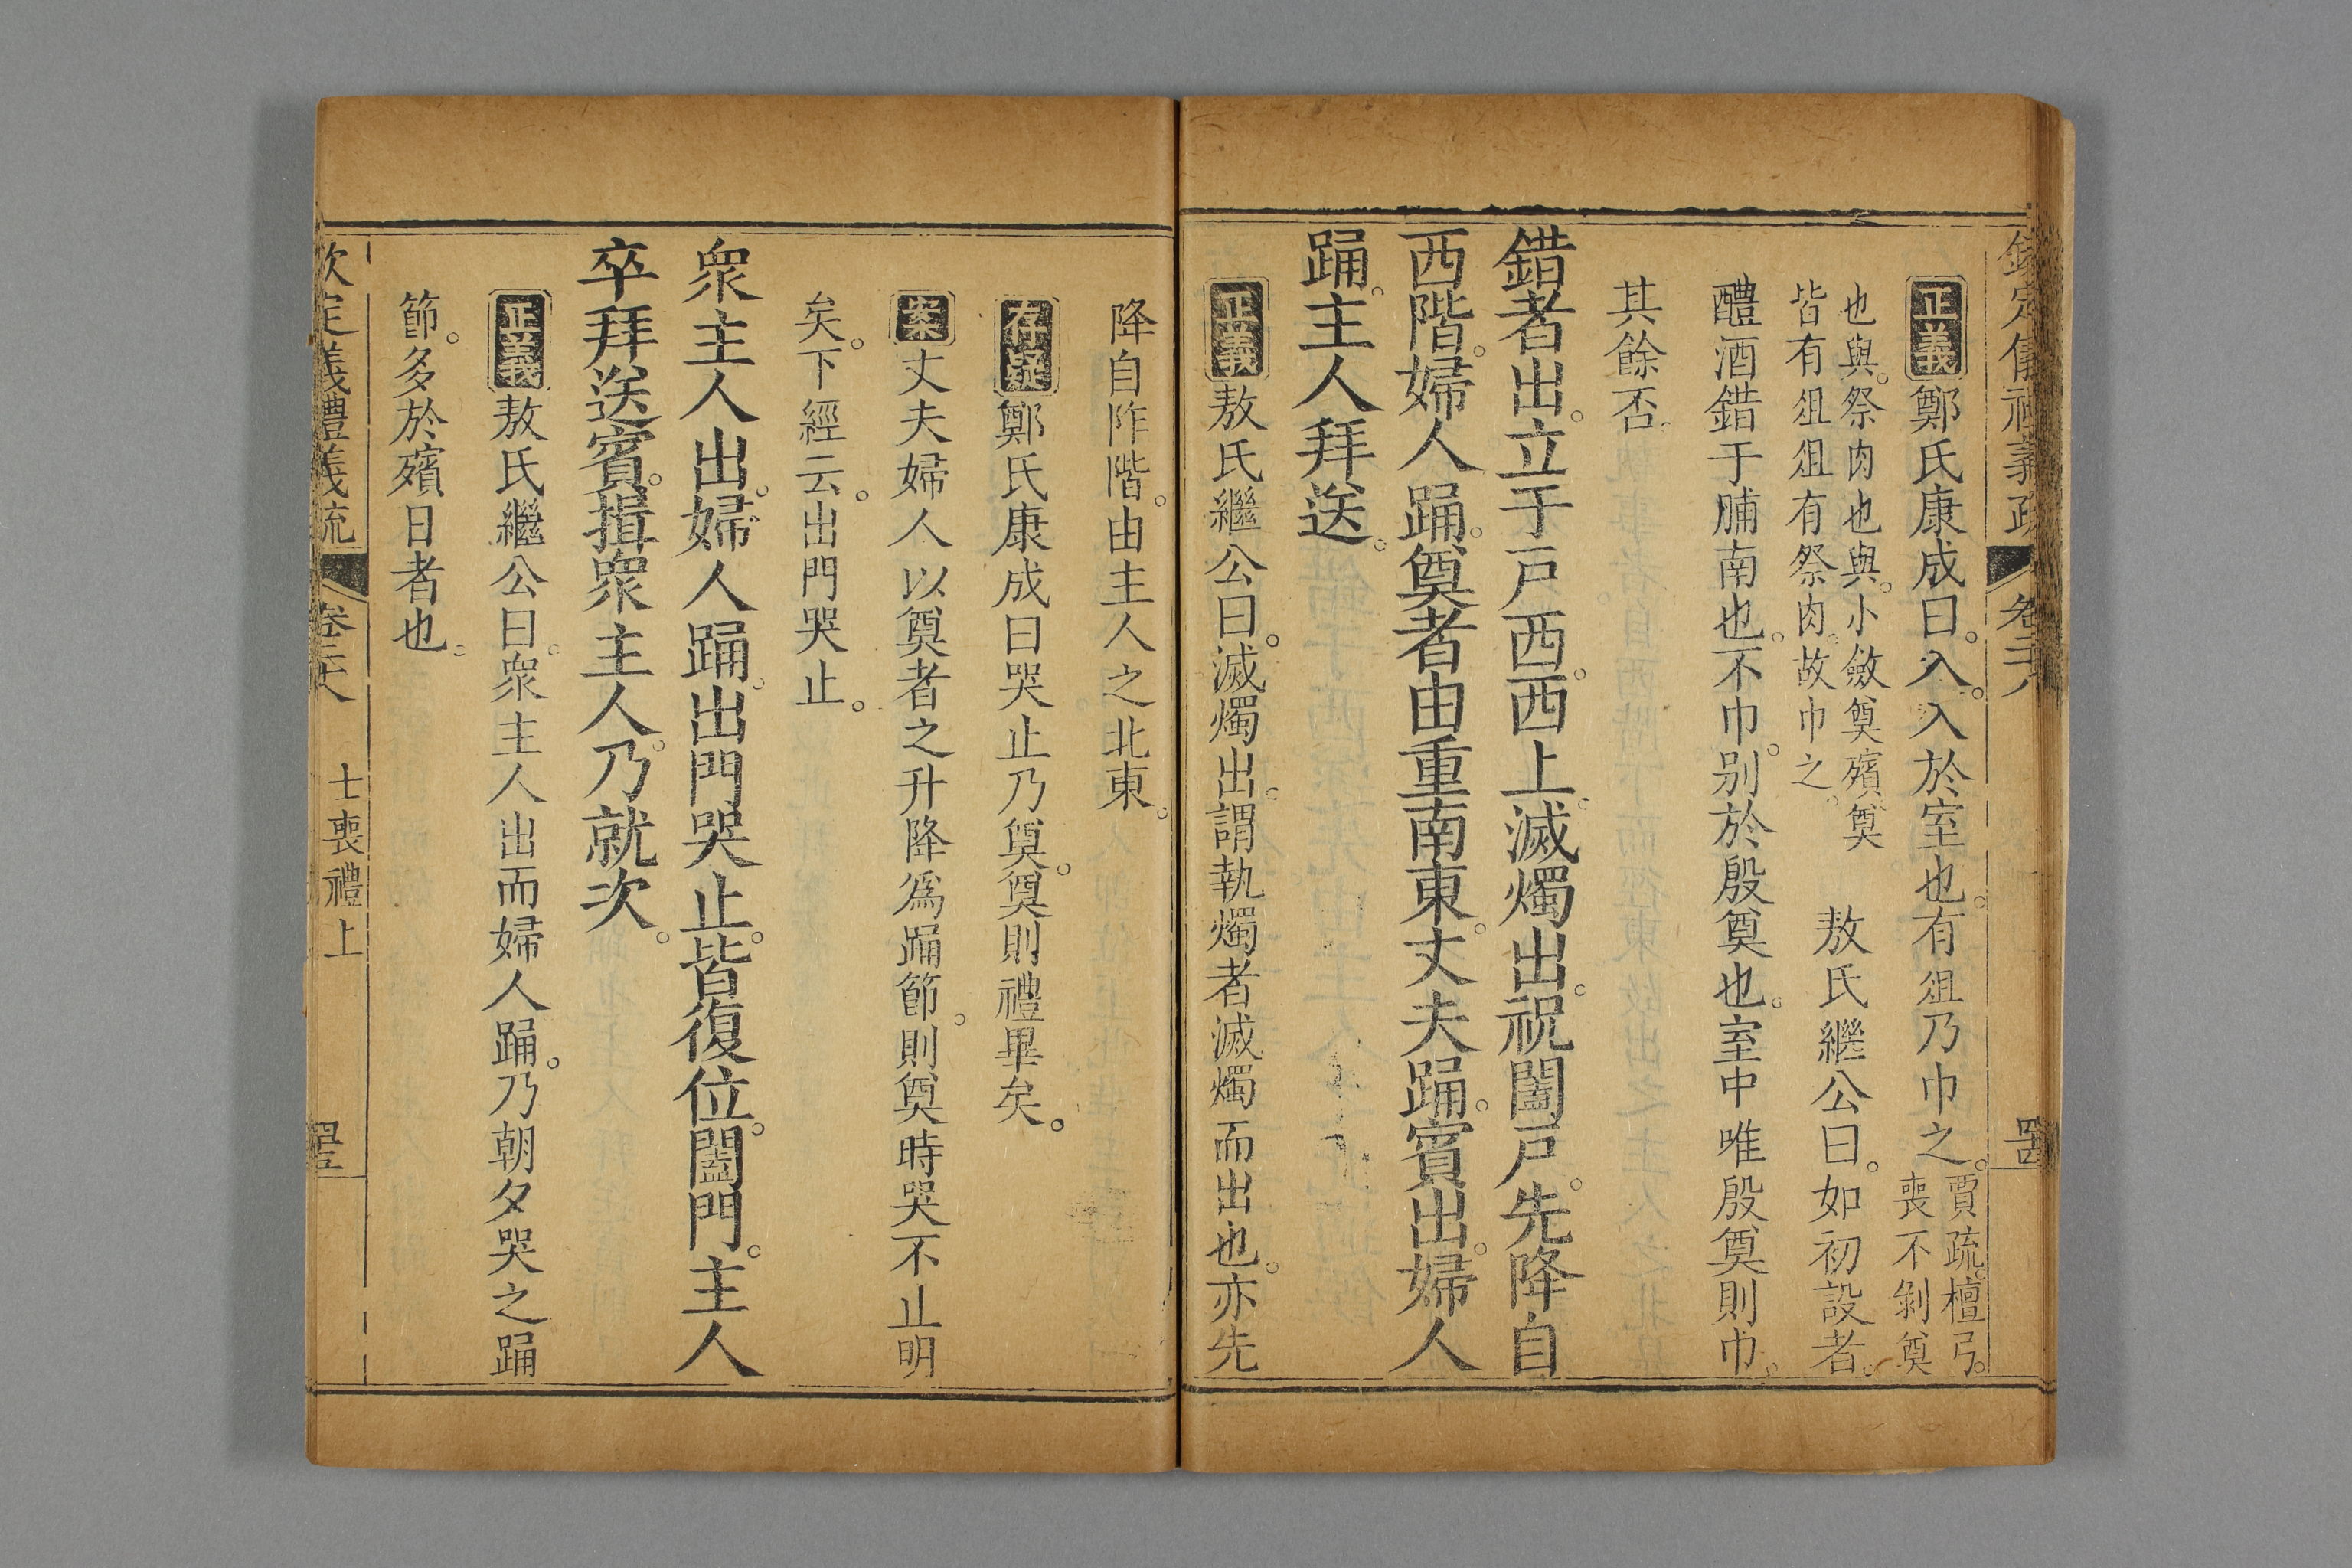 欽定儀禮義疏 卷二十八 四十四
正義鄭氏康成曰。入。入於室也。有俎乃巾之。賈疏。檀弓。喪不剝奠
也與。祭肉也與。小斂奠殯奠皆有俎俎有祭肉。故巾之。 敖氏繼公曰。如初設者。
醴酒錯于脯南也。不巾。别於殷奠也。室中唯殷奠則巾。
其餘否。
錯者出。立于戸西。西上。滅燭出。祝闔戸。先降自
西階。婦人踊。奠者由重南東。丈夫踊。賓出。婦人
踊。主人拜送。
正義敖氏繼公曰。滅燭出。謂執燭者滅燭而出也。亦先
降自阼階。由主人之北東。
存疑鄭氏康成曰哭止乃奠。奠則禮畢矣。
案丈夫婦人以奠者之升降爲踊節。則奠時哭不止明
矣。下經云。出門哭止。
衆主人出。婦人踊。出門哭止。皆復位。闔門。主人
卒拜送賓。揖衆主人。乃就次。
正義敖氏繼公曰。衆主人出而婦人踊。乃朝夕哭之踊
節。多於殯日者也。
欽定義禮義疏 卷二十八 士喪禮上 四十五